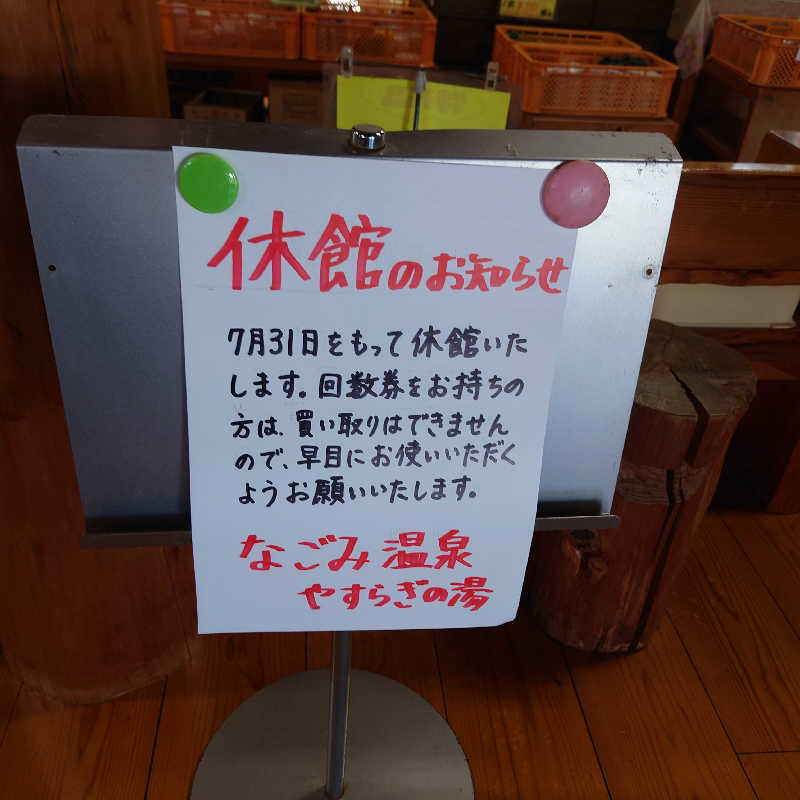 休館のお知らせ
7月31日をもって休館いた
します。回数券をお持ちの
方は、買い取りはできません
ので、早目にお使いいただく
ようお願いいたします。
なごみ温泉
やすらぎの湯